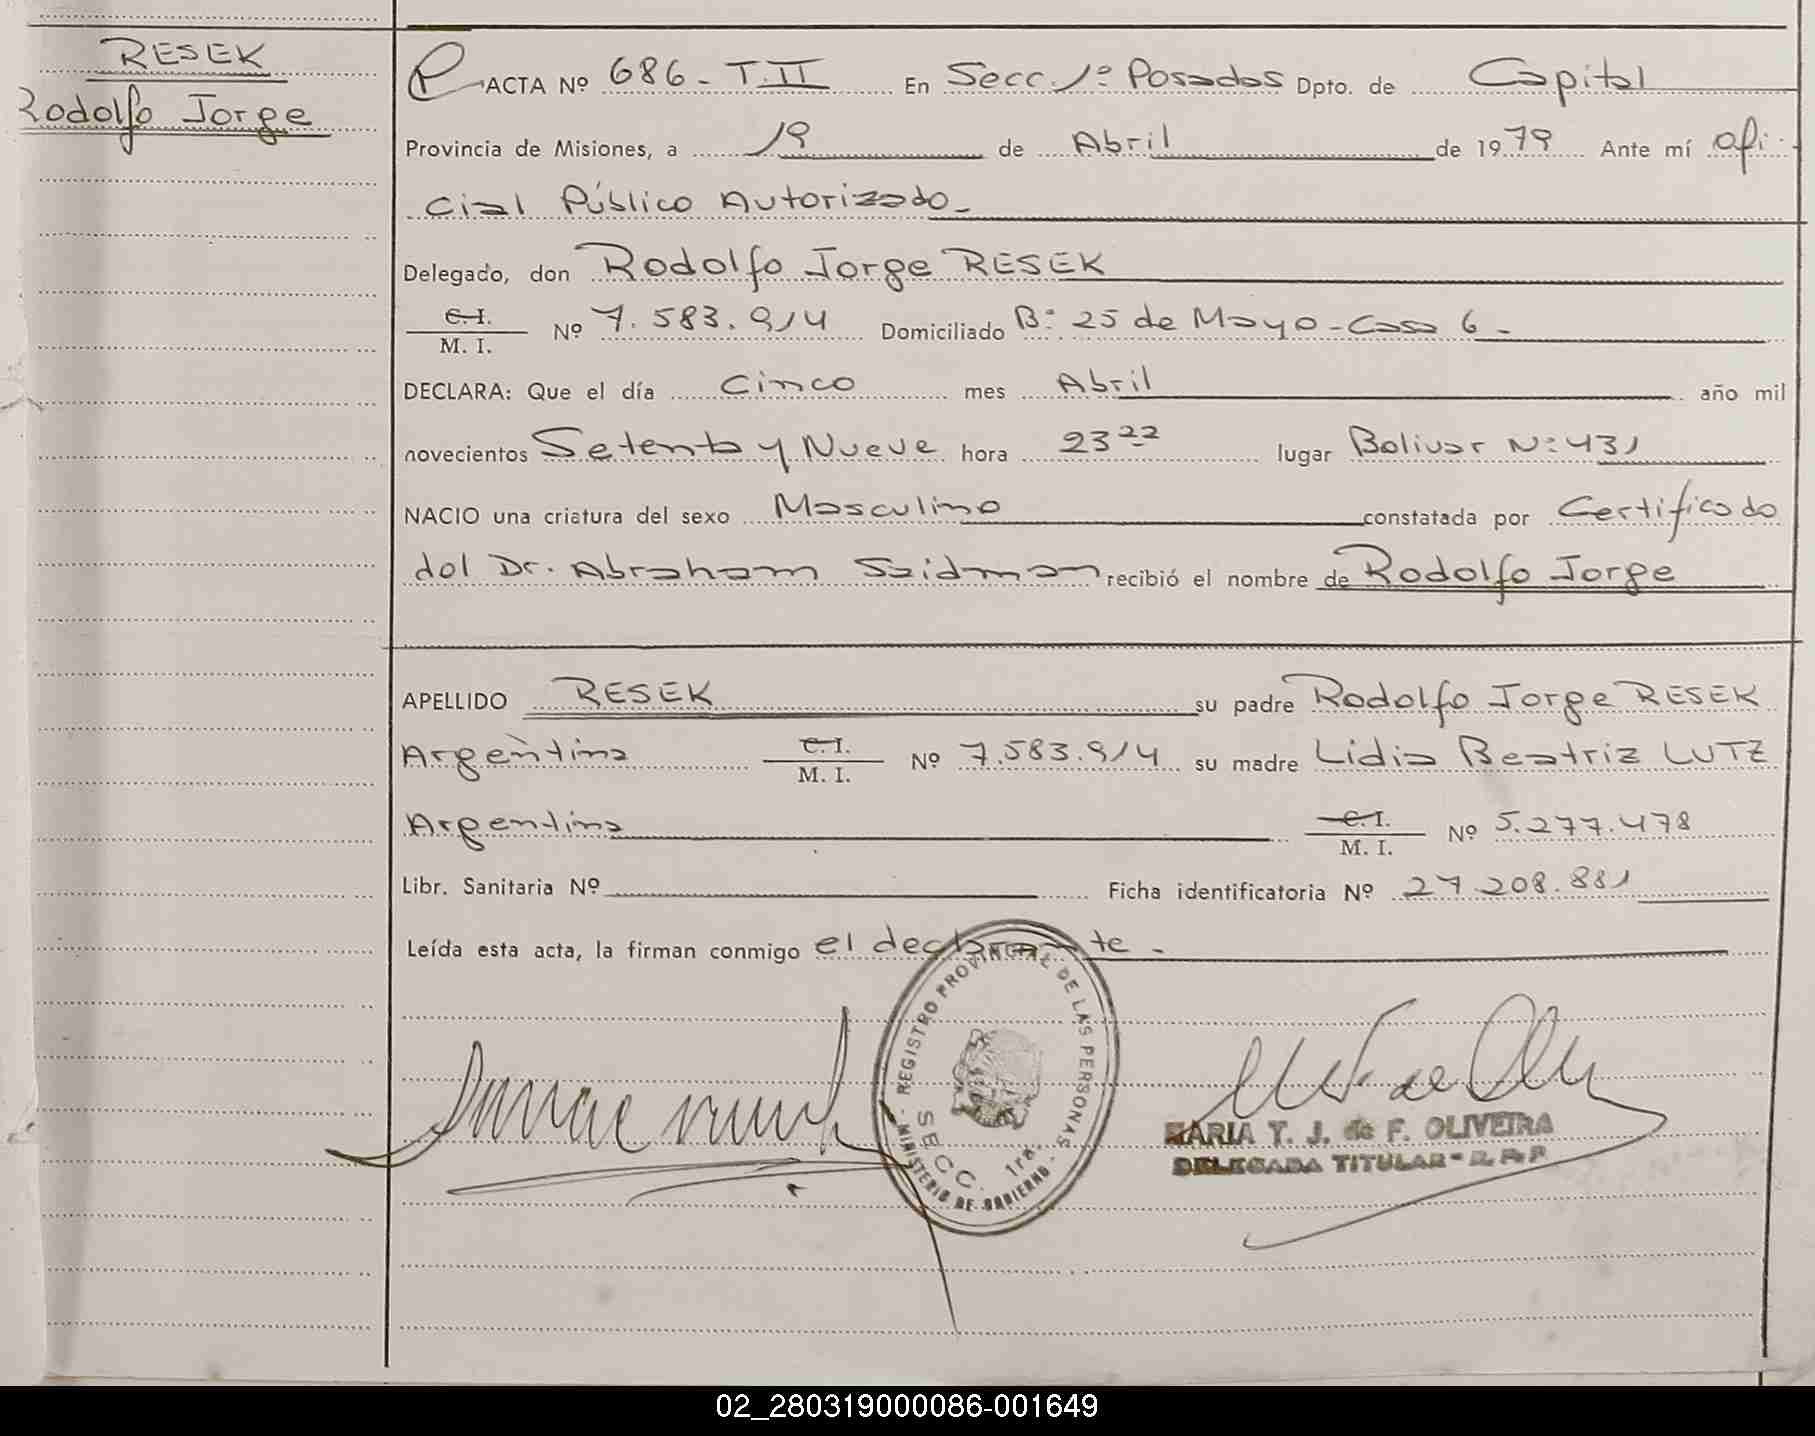 RESEK
Rodolfo Jorge
ACTA Nº 686 - T. II En Secc. 1º Posadas Dpto. de Capital
Provincia de Misiones, a 19 de Abril de 1979 Ante mí Ofi-
cial Público Autorizado -
Delegado, don Rodolfo Jorge RESEK
C. I.
M. I. Nº 7.583.914 Domiciliado Bº 25 de Mayo - Casa 6 -
DECLARA: Que el día Cinco mes Abril año mil
novecientos Setenta y Nueve hora 23 22 lugar Bolivar Nº 431
NACIO una criatura del sexo Masculino constatada por Certificado
del Dr. Abraham Saidman recibió el nombre de Rodolfo Jorge
APELLIDO RESEK su padre Rodolfo Jorge RESEK
Argentina C. I. M. I. Nº 7.583.914 su madre Lidia Beatriz LUTZ
Argentina C. I. M. I. Nº 5.277.478
Libr. Sanitaria Nº Ficha identificatoria Nº 27.208.881
Leída esta acta, la firman conmigo el declarante -
REGISTRO PROVINCIAL DE LAS PERSONAS
SECC. 1ra.
MINISTERIO DE GOBIERNO
MARIA T. J. de F. OLIVEIRA
DELEGADA TITULAR - R. P. P
02_280319000086-001649